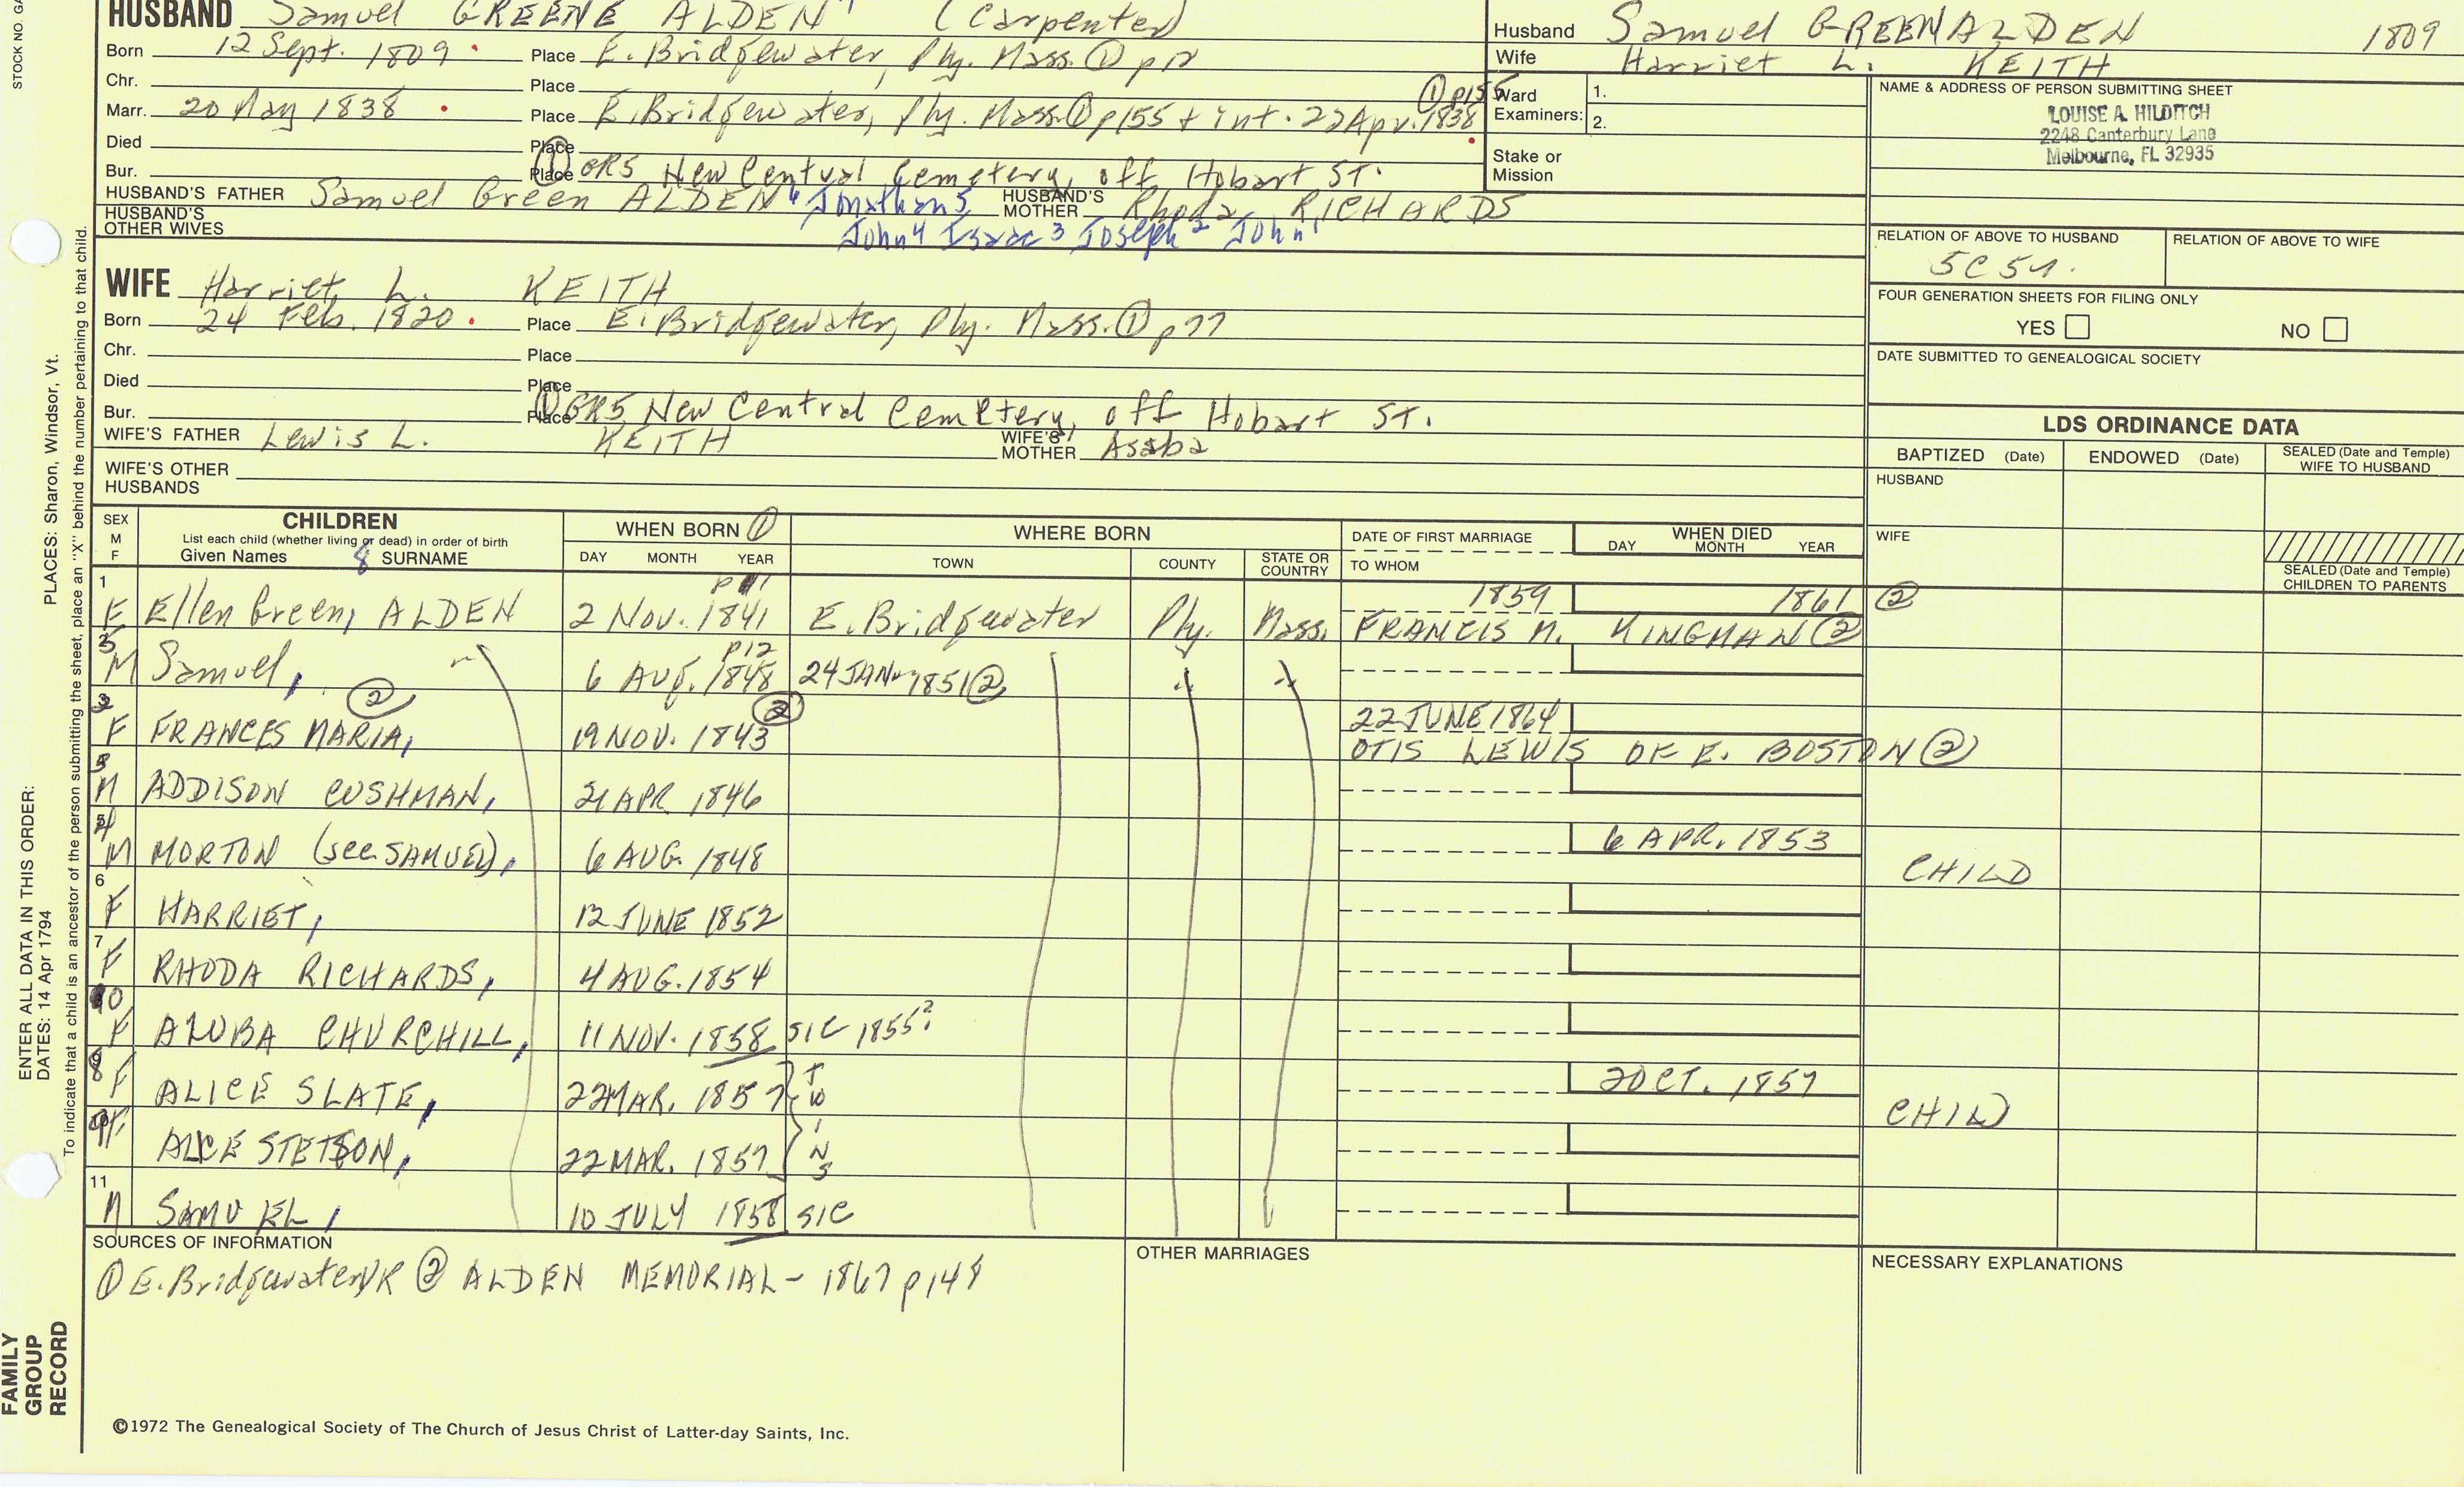 STOCK NO. GA
HUSBAND Samuel GREENE ALDEN 7 (Carpenter)
Born 12 Sept. 1809 Place E. Bridgewater, Ply. Mass. ① p12
Chr. Place
Marr. 20 May 1838 Place E. Bridgewater, Ply. Mass. ① p155 + int. 22 Apr. 1838 ① p155
Died Place
Bur. Place ① GR5 New Central Cemetery, off Hobart ST.
HUSBAND'S FATHER Samuel Green ALDEN 6 Jonathan 5 HUSBAND'S MOTHER Rhoda RICHARDS
HUSBAND'S OTHER WIVES John 4 Isaac 3 Joseph 2 John 1
WIFE Harriet L. KEITH
Born 24 Feb. 1820 Place E. Bridgewater, Ply. Mass. ① p77
Chr. Place
Died Place
Bur. Place ① GR5 New Central Cemetery, off Hobart ST.
WIFE'S FATHER Lewis L. KEITH WIFE'S MOTHER Asaba
WIFE'S OTHER HUSBANDS
Husband Samuel GREEN ALDEN 1809
Wife Harriet L. KEITH
Ward Examiners: 1.
2.
Stake or Mission
NAME & ADDRESS OF PERSON SUBMITTING SHEET
LOUISE A. HILDITCH
2248 Canterbury Lane
Melbourne, FL 32935
RELATION OF ABOVE TO HUSBAND RELATION OF ABOVE TO WIFE
5C5
FOUR GENERATION SHEETS FOR FILING ONLY
YES NO
DATE SUBMITTED TO GENEALOGICAL SOCIETY
LDS ORDINANCE DATA
BAPTIZED (Date) ENDOWED (Date) SEALED (Date and Temple) WIFE TO HUSBAND
HUSBAND
WIFE
SEALED (Date and Temple) CHILDREN TO PARENTS
SEX M F
CHILDREN
List each child (whether living or dead) in order of birth
Given Names 8 SURNAME
WHEN BORN ①
DAY MONTH YEAR
WHERE BORN
TOWN COUNTY STATE OR COUNTRY
DATE OF FIRST MARRIAGE
TO WHOM
WHEN DIED
DAY MONTH YEAR
1 F Ellen Green, ALDEN 2 Nov. 1841 p11 E. Bridgewater Ply. Mass. 1859 1861 ②
FRANCIS M. KINGMAN ②
5 M Samuel, 6 AUG. 1848 p12 24 JAN 1851 ② " "
2 F FRANCES MARIA, ② 19 NOV. 1843 ② 22 JUNE 1864
OTIS LEWIS OF E. BOSTON ②
3 M ADDISON CUSHMAN, 21 APR 1846
4 M MORTON (see SAMUEL), 6 AUG. 1848 6 APR. 1853 CHILD
6 F HARRIET, 12 JUNE 1852
7 F RHODA RICHARDS, 4 AUG. 1854
10 F AZUBA CHURCHILL, 11 NOV. 1858 SIC 1855?
8 F ALICE SLATE, 22 MAR. 1857 TWINS 2 OCT. 1857 CHILD
9 F ALICE STETSON, 22 MAR. 1857
11 M SAMUEL, 10 JULY 1858 SIC
SOURCES OF INFORMATION
① E. Bridgewater VR ② ALDEN MEMORIAL - 1867 p148
OTHER MARRIAGES
NECESSARY EXPLANATIONS
©1972 The Genealogical Society of The Church of Jesus Christ of Latter-day Saints, Inc.
FAMILY GROUP RECORD
ENTER ALL DATA IN THIS ORDER:
DATES: 14 Apr 1794
PLACES: Sharon, Windsor, Vt.
To indicate that a child is an ancestor of the person submitting the sheet, place an "X" behind the number pertaining to that child.